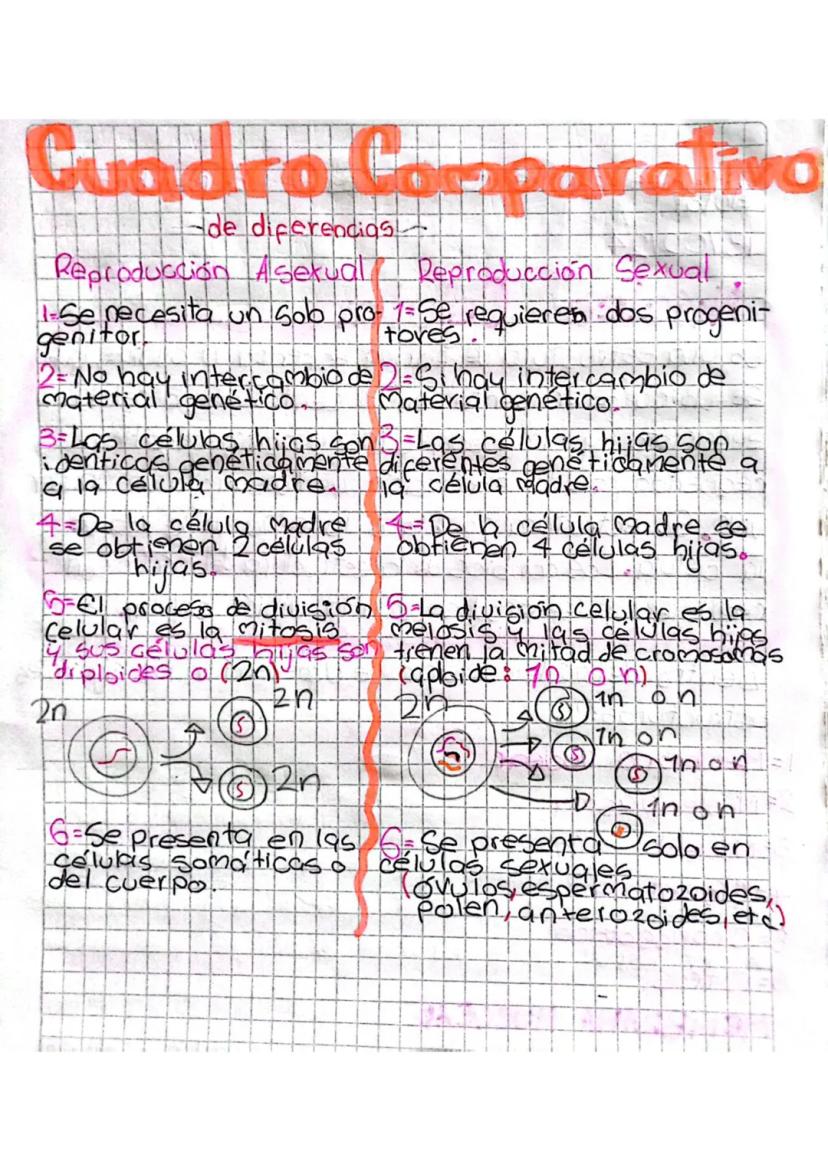 Cuadro Comparativo
de diferencias
Reproducción Asexual
1=Se necesita un solo pro-
genitor.
2= No hay intercambio de
material genético.
3=Las células hijas son
identicas genéticamente
a la célula madre.
4=De la célula madre
se obtienen 2 células
hijas.
5=El proceso de división
celular es la mitosis
y sus células hijas son
diploides o (2n)
2n
2n
2n
6=Se presenta en las
células somáticas o
del cuerpo.
Reproducción Sexual
1=Se requieren dos progeni-
tores.
2=Si hay intercambio de
material genético.
3=Las células hijas son
diferentes genéticamente a
la célula madre.
4=De la célula madre se
obtienen 4 células hijas.
5=La división celular es la
meiosis y las células hijas
tienen la mitad de cromosomas
(aploide: 1n o n)
2n
1n o n
1n o n
1n o n
1n o n
6= Se presenta solo en
células sexuales
(óvulos, espermatozoides,
polen, anterozoides, etc)